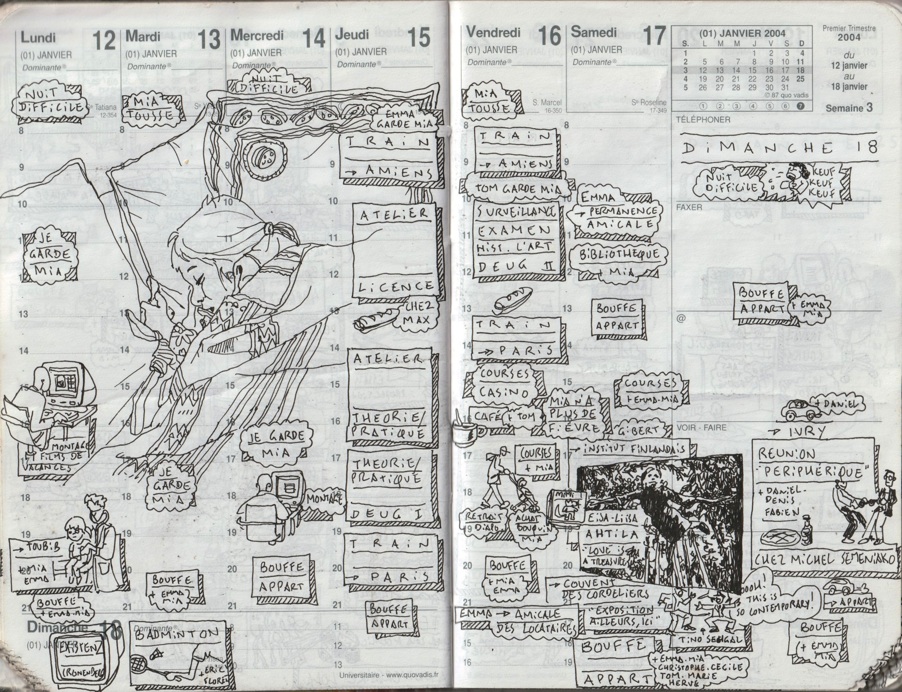 Lundi 12
(01) JANVIER
Dominante
NUIT
DIFFICILE
Tatiana
JE
GARDE
MIA
MONTAGE
ET FILMS DE
VACANCES
→ TOUBIB
+ MIA
EMMA
BOUFFE
+ EMMA-MIA
Dimanche 18
EXISTENZ
CRONENBERG
Mardi 13
(01) JANVIER
Dominante
MIA
TOUSSE
JE
GARDE
MIA
BOUFFE
+ EMMA
MIA
BADMINTON
+ ERIC
FLORENT
Mercredi 14
(01) JANVIER
Dominante
NUIT
DIFFICILE
JE GARDE
MIA
MONTAGE
BOUFFE
APPART
Jeudi 15
(01) JANVIER
Dominante
EMMA
GARDE MIA
TRAIN
→ AMIENS
ATELIER
LICENCE
CHEZ
MAX
ATELIER
THEORIE/
PRATIQUE
THEORIE/
PRATIQUE
DEUG I
TRAIN
→ PARIS
BOUFFE
APPART
Universitaire - www.quovadis.fr
Vendredi 16
(01) JANVIER
Dominante
MIA
TOUSSE
S. Marcel
TRAIN
→ AMIENS
TOM GARDE MIA
SURVEILLANCE
EXAMEN
HISS. L'ART
DEUG II
TRAIN
→ PARIS
COURSES
CASINO
CAFÉ + TOM
COURSES
+ MIA
RETRAIT
DIAPO
ACHAT
BOUQUIN
MIA
BOUFFE
+ MIA
EMMA
EMMA → AMICALE
DES LOCATAIRES
Samedi 17
(01) JANVIER
Dominante
Se Roseline
EMMA
→ PERMANENCE
AMICALE
BIBLIOTHEQUE
+ MIA
BOUFFE
APPART
COURSES
+ EMMA-MIA
MIA N'A
PLUS DE
FIEVRE
GIBERT
→ INSTITUT FINLANDAIS
EIJA-LIISA
AHTILA
"LOVE IS
A TREASURE"
→ COUVENT
DES CORDELIERS
"EXPOSITION
AILLEURS, ICI"
OOOUU!
THIS IS
SO CONTEMPORARY!
TINO SEHGAL
BOUFFE
APPART
+ EMMA-MIA
CHRISTOPHE-CECILE
TOM-MARIE
HERVE
(01) JANVIER 2004
S. L M M J V S D
1 1 2 3 4
2 5 6 7 8 9 10 11
3 12 13 14 15 16 17 18
4 19 20 21 22 23 24 25
5 26 27 28 29 30 31
© 87 quo vadis
① ② ③ ④ ⑤ ⑥ ⑦
Premier Trimestre
2004
du
12 janvier
au
18 janvier
Semaine 3
TÉLÉPHONER
DIMANCHE 18
NUIT
DIFFICILE
KEUF
KEUF
KEUF
FAXER
BOUFFE
APPART
+ EMMA
MIA
@
VOIR - FAIRE
+ DANIEL
→ IVRY
REUNION
"PERIPHÉRIQUE"
+ DANIEL-
DENIS
FABIEN
CHEZ MICHEL SEMENIAKO
→ APPART
BOUFFE
+ EMMA
MIA